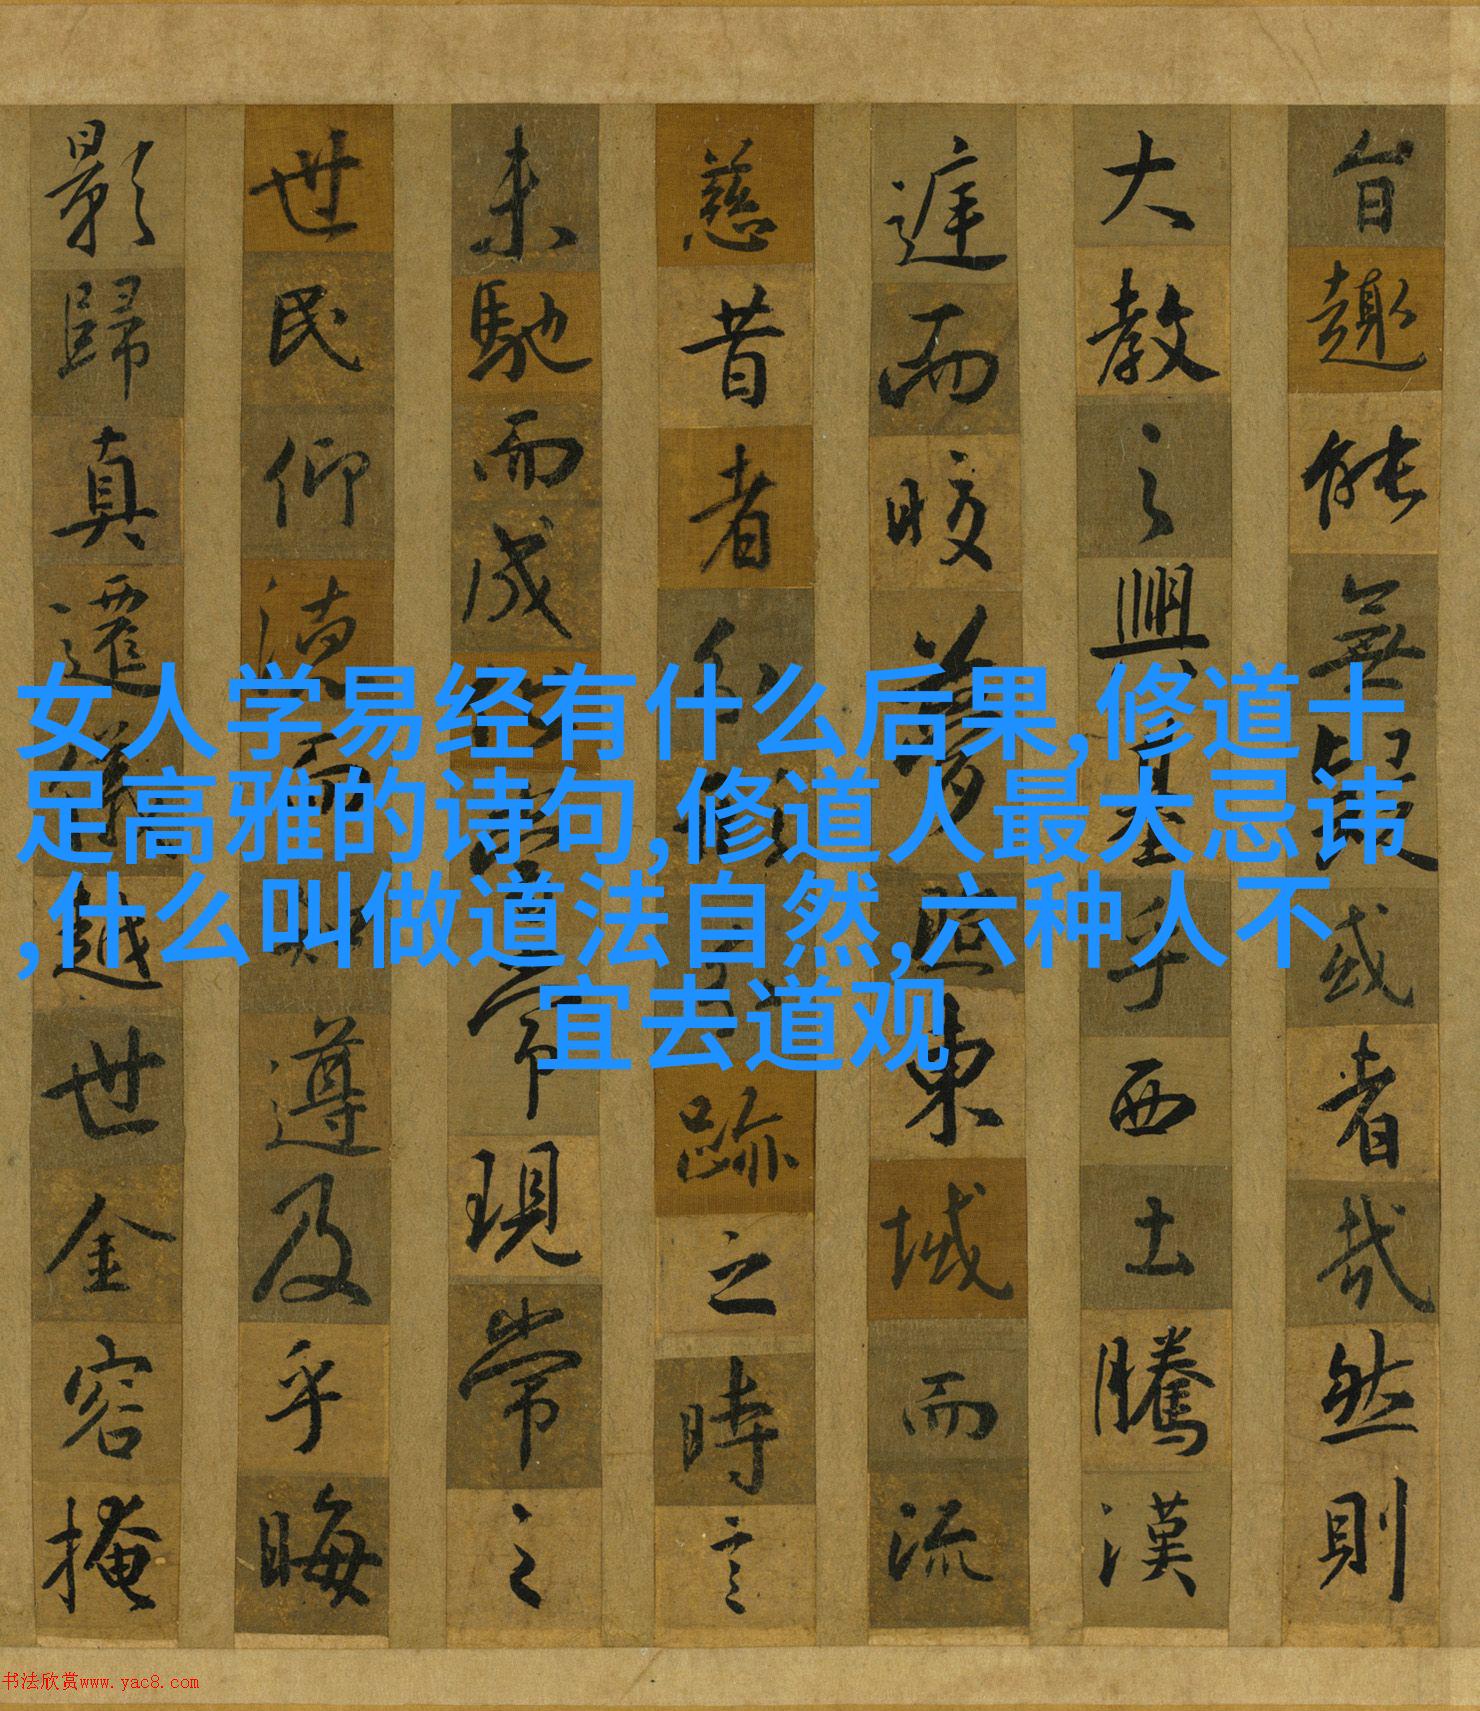 旨趣能無疑或者哉然則
大教之興基乎西土騰漢
庭而皎夢照東域而流
慈昔者分形分跡之時言
未馳而成化當常現常之
世民仰德而知遵及乎晦
影歸真遷儀越世金容掩
女人学易经有什么后果,修道十
足高雅的诗句,修道人最大忌讳
,什么叫做道法自然,六种人不
宜去道观
书法欣赏www.yac8.com